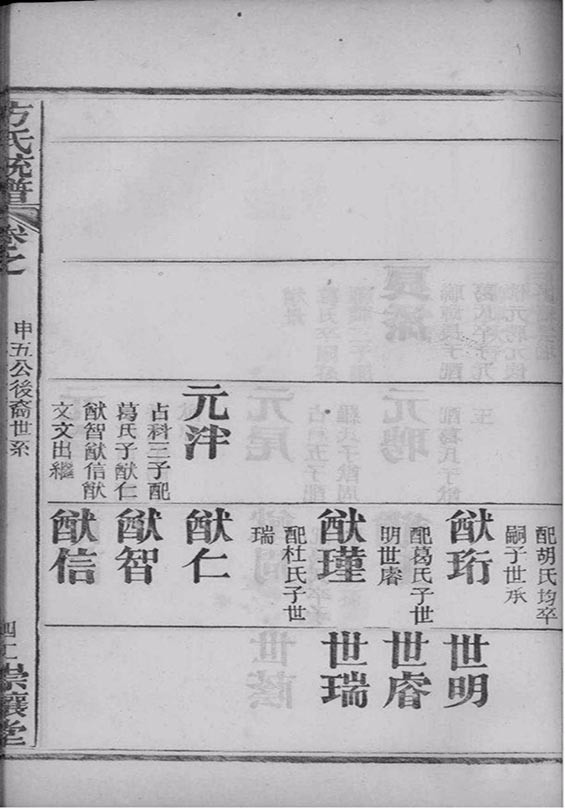 配胡氏均卒
嗣子世承
猷珩
配葛氏子世
明世睿
猷瑾
配杜氏子世
瑞
世明
世睿
世瑞
元泮
占科三子配
葛氏子猷仁
猷智猷信猷
文文出繼
猷仁
猷智
猷信
方氏統譜
卷之
申五公後裔世系
四二
崇讓堂